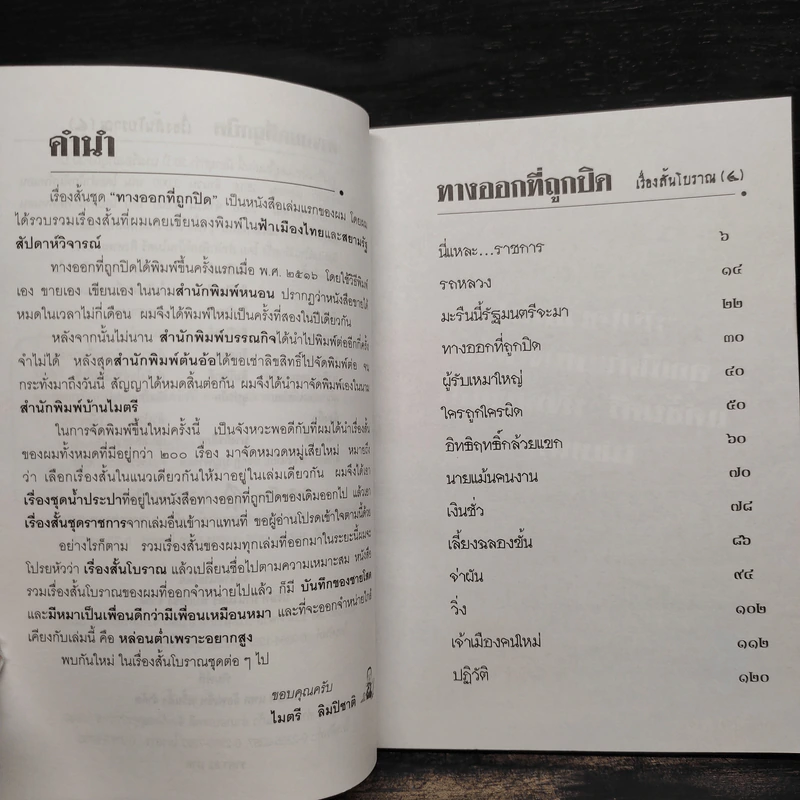 คำนำ
เรื่องสั้นชุด "ทางออกที่ถูกปิด" เป็นหนังสือเล่มแรกของผม โดยผม
ได้รวบรวมเรื่องสั้นที่ผมเคยเขียนลงพิมพ์ในฟ้าเมืองไทยและสยามรัฐ
สัปดาห์วิจารณ์
ทางออกที่ถูกปิดได้พิมพ์ขึ้นครั้งแรกเมื่อ พ.ศ. ๒๕๑๖ โดยใช้วิธีพิมพ์
เอง ขายเอง เขียนเอง ในนามสำนักพิมพ์หนอน ปรากฏว่าหนังสือขายได้
หมดในเวลาไม่กี่เดือน ผมจึงได้พิมพ์ใหม่เป็นครั้งที่สองในปีเดียวกัน
หลังจากนั้นไม่นาน สำนักพิมพ์บรรณกิจได้นำไปพิมพ์ต่ออีกกี่ครั้ง
จำไม่ได้ หลังสุดสำนักพิมพ์ต้นอ้อได้ขอเช่าลิขสิทธิ์ไปจัดพิมพ์ต่อ จน
กระทั่งมาถึงวันนี้ สัญญาได้หมดสิ้นต่อกัน ผมจึงได้นำมาจัดพิมพ์เองในนาม
สำนักพิมพ์บ้านไมตรี
ในการจัดพิมพ์ขึ้นใหม่ครั้งนี้ เป็นจังหวะพอดีกับที่ผมได้นำเรื่องสั้น
ของผมทั้งหมดที่มีอยู่กว่า ๒๐๐ เรื่อง มาจัดหมวดหมู่เสียใหม่ หมายถึง
ว่า เลือกเรื่องสั้นในแนวเดียวกันให้มาอยู่ในเล่มเดียวกัน ผมจึงได้เอา
เรื่องชุดน้ำประปาที่อยู่ในหนังสือทางออกที่ถูกปิดของเดิมออกไป แล้วเอา
เรื่องสั้นชุดราชการจากเล่มอื่นเข้ามาแทนที่ ขอผู้อ่านโปรดเข้าใจตามนี้ด้วย
อย่างไรก็ตาม รวมเรื่องสั้นของผมทุกเล่มที่ออกมาในระยะนี้ผมจะ
โปรยหัวว่า เรื่องสั้นโบราณ แล้วเปลี่ยนชื่อไปตามความเหมาะสม หนังสือ
รวมเรื่องสั้นโบราณของผมที่ออกจำหน่ายไปแล้ว ก็มี บันทึกของชายโสด
และมีหมาเป็นเพื่อนดีกว่ามีเพื่อนเหมือนหมา และที่จะออกจำหน่ายใกล้
เคียงกับเล่มนี้ คือ หล่อนต่ำเพราะอยากสูง
พบกันใหม่ ในเรื่องสั้นโบราณชุดต่อ ๆ ไป
ขอบคุณครับ
ไมตรี ลิมปิชาติ
ทางออกที่ถูกปิด เรื่องสั้นโบราณ (๔)
นี่แหละ...ราชการ ๖
รถหลวง ๑๔
มะรืนนี้รัฐมนตรีจะมา ๒๒
ทางออกที่ถูกปิด ๓๐
ผู้รับเหมาใหญ่ ๔๐
ใครถูกใครผิด ๕๐
อิทธิฤทธิ์กล้วยแขก ๖๐
นายแม้นคนงาน ๗๐
เงินชั่ว ๗๘
เลี้ยงฉลองชั้น ๘๖
จ่าผัน ๙๔
วิ่ง ๑๐๒
เจ้าเมืองคนใหม่ ๑๑๒
ปฏิวัติ ๑๒๐